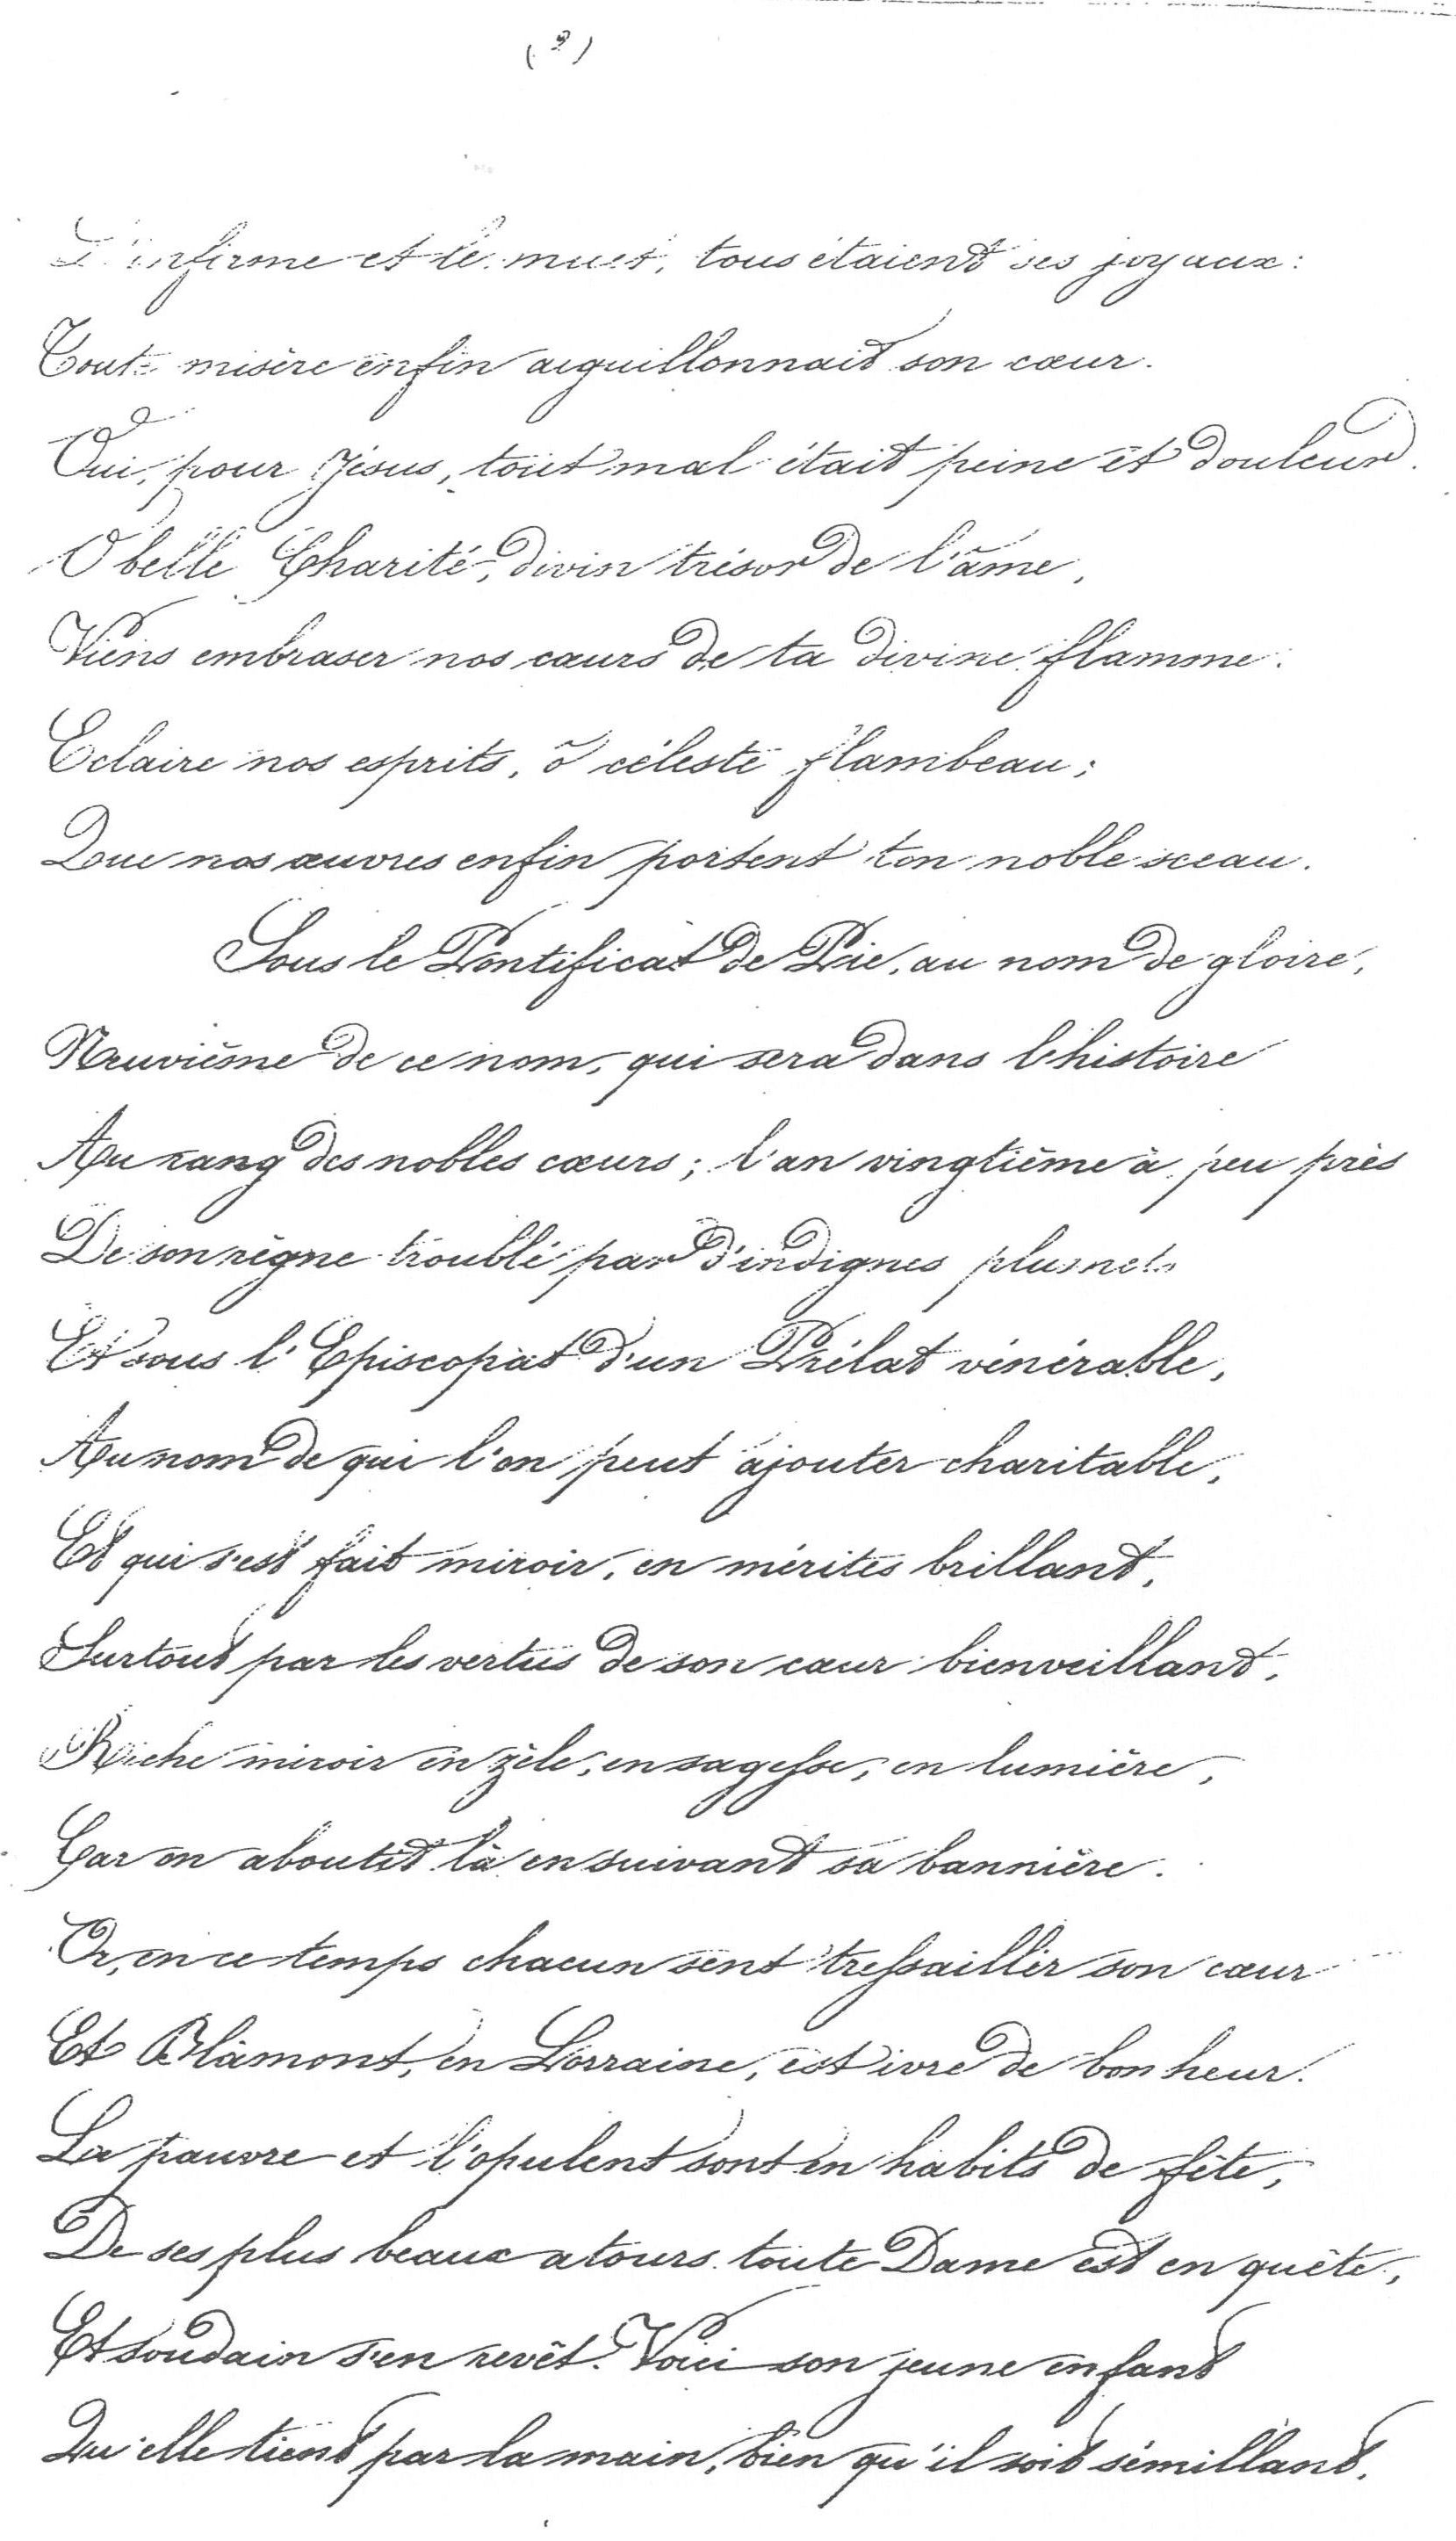 L'infirme et le muet, tous étaient ses joyaux:
Toute misère enfin aiguillonnait son cœur.
Oui, pour Jésus, tout mal était peine et douleur.
O belle Charité, divin trésor de l'âme,
Viens embraser nos cœurs de ta divine flamme.
Eclaire nos esprits, ô céleste flambeau;
Que nos œuvres enfin portent ton noble sceau.
Sous le Pontificat de Pie, au nom de gloire,
Neuvième de ce nom, qui sera dans l'histoire
Au rang des nobles cœurs; l'an vingtième à peu près
De son règne troublé par d'indignes
Et sous l'Episcopat d'un Prélat vénérable,
Au nom de qui l'on peut ajouter charitable,
Et qui s'est fait miroir, en mérites brillant,
Surtout par les vertus de son cœur bienveillant,
Riche miroir en zèle, en sagesse, en lumière,
Car on aboutit là en suivant sa bannière.
Or, en ce temps chacun sent tressaillir son cœur
Et Blâmont, en Lorraine, est ivre de bonheur.
Le pauvre et l'opulent sont en habits de fête,
De ses plus beaux atours toute Dame est en quête,
Et soudain s'en revêt. Voici son jeune enfant
Qu'elle tient par la main, bien qu'il soit sémillant,